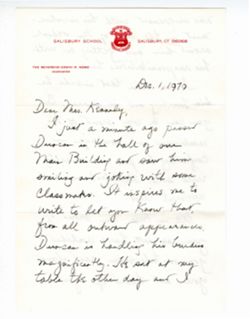 SALISBURY SCHOOL
SALISBURY, CT. 06068
THE REVEREND EDWIN M. WARD
HEADMASTER
Dec. 1, 1970
Dear Mrs. Kennedy,
I just a minute ago passed
Duncan in the hall of our
Main Building and saw him
smiling and joking with some
classmates. It inspires me to
write to let you know that,
from all outward appearances,
Duncan is handling his burden
magnificently. He sat at my
table the other day and I